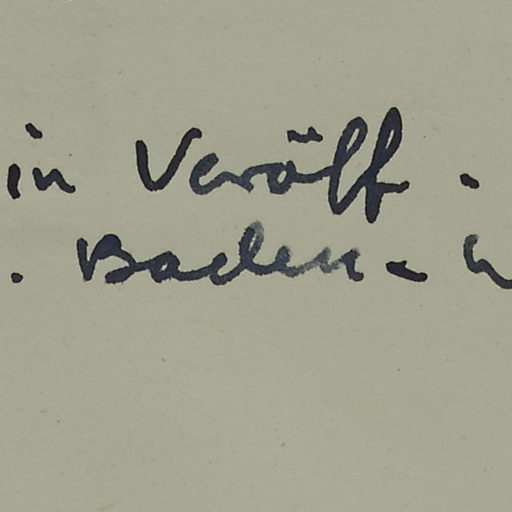 in Veröff.
. Baden-W